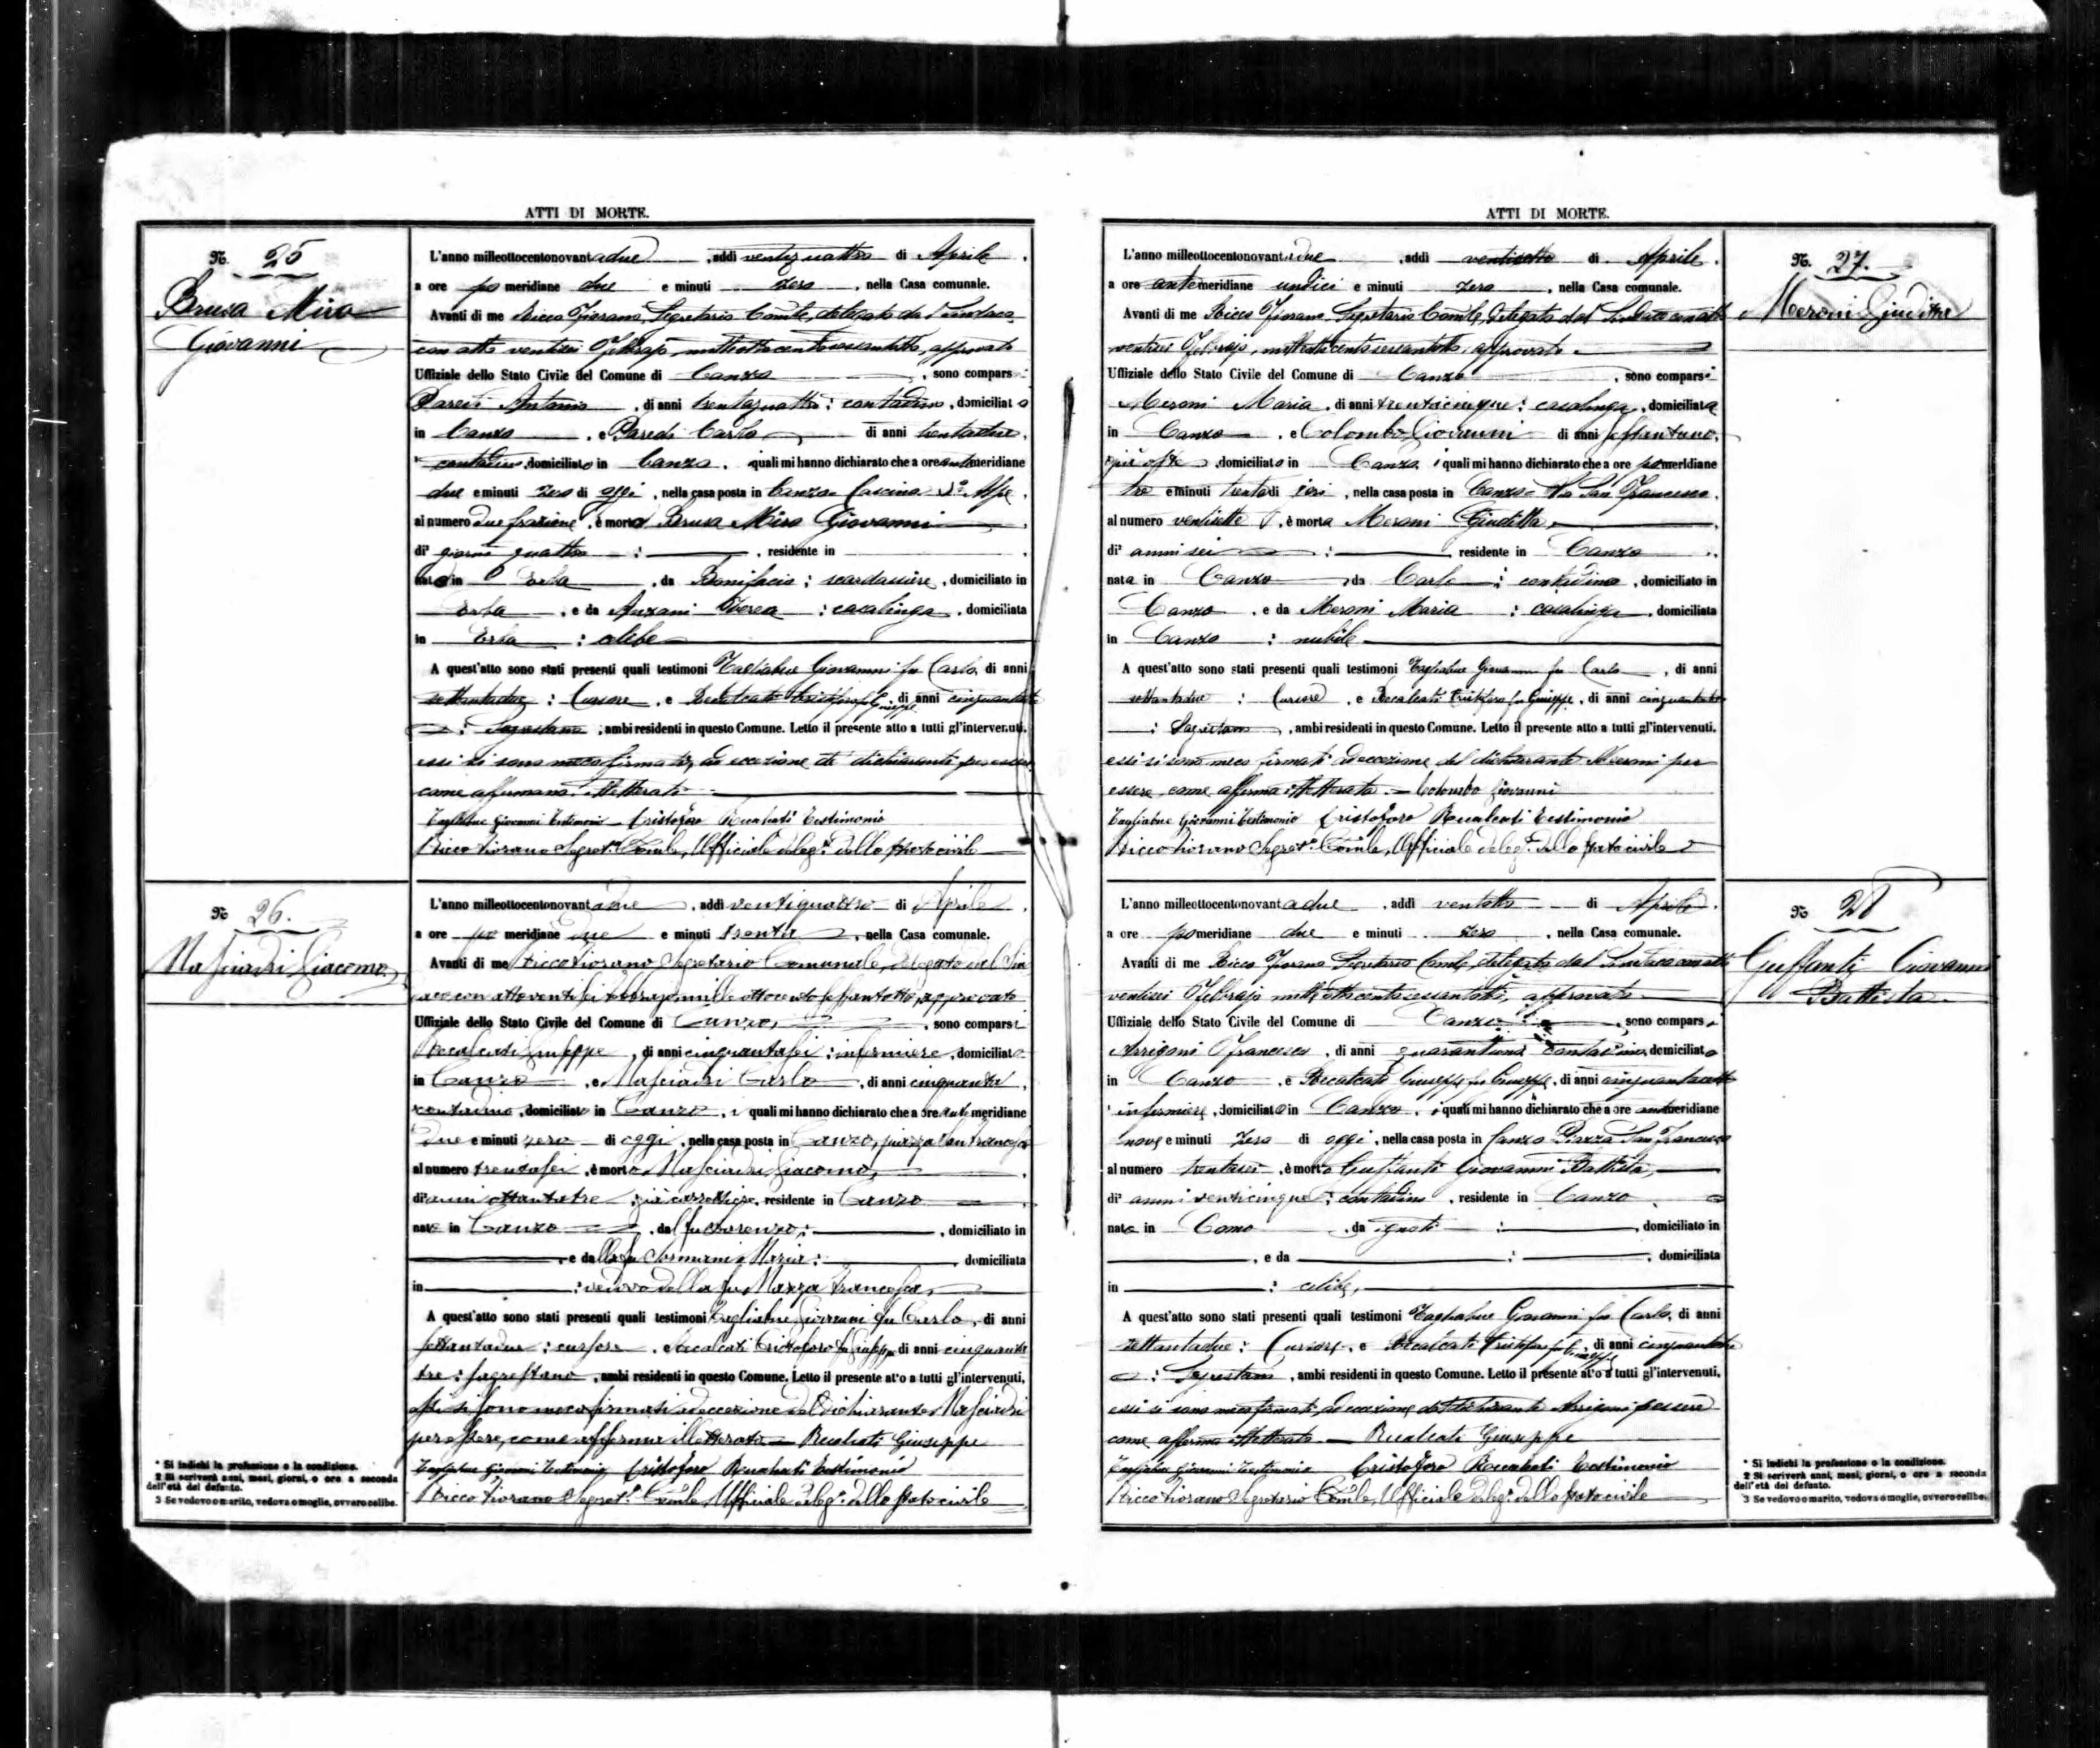 ATTI DI MORTE.
N. 25
Brusa Miro
Giovanni
L'anno milleottocentonovantadue, addì ventiquattro di Aprile,
a ore pomeridiane due e minuti zero, nella Casa comunale.
Avanti di me Ricco Fiorano, Segretario Comle, delegato dal Sindaco
con atto ventisei Febbrajo, milleottocentosessantotto, approvato
Uffiziale dello Stato Civile del Comune di Canzo, sono comparsi:
Paredi Antonio, di anni trentaquattro: contadino, domiciliato
in Canzo, e Paredi Carlo, di anni
contadino, domiciliato in Canzo, i quali mi hanno dichiarato che a ore antemeridiane
due e minuti zero di oggi, nella casa posta in Canzo Cascina Alpe,
al numero due frazione, è morto Brusa Miro Giovanni,
di² giorni quattro: residente in
nato in Erba, da Bonifacio: scardassiere, domiciliato in
Erba, e da Anzani: casalinga, domiciliata
in Erba: celibe
A quest'atto sono stati presenti quali testimoni Tagliabue Giovanni fu Carlo, di anni
settantadue: Cursore, e Recalcati Cristoforo fu Giuseppe, di anni cinquantatre
: Sagrestano, ambi residenti in questo Comune. Letto il presente atto a tutti gl'intervenuti,
essi si sono meco firmati, ad eccezione dei dichiaranti per essere
come affermano illetterati.
Tagliabue Giovanni Testimonio Cristoforo Recalcati Testimonio
Ricco Fiorano Segret.° Comle, Ufficiale deleg.° dello stato civile
N. 26.
Masciadri Giacomo
L'anno milleottocentonovantadue, addì ventiquattro di Aprile,
a ore pomeridiane due e minuti trenta, nella Casa comunale.
Avanti di me Ricco Fiorano Segretario Comunale, delegato dal Sin
daco con atto ventisei febbrajo mille ottocento sessantotto, approvato
Uffiziale dello Stato Civile del Comune di Canzo, sono comparsi
Recalcati Giuseppe, di anni cinquantasei: infermiere, domiciliato
in Canzo, e Masciadri Carlo, di anni cinquanta,
contadino, domiciliato in Canzo, i quali mi hanno dichiarato che a ore antemeridiane
due e minuti zero di oggi, nella casa posta in Canzo, piazza San Francesco
al numero trentasei, è morto Masciadri Giacomo,
di² anni ottantatre: già carrettiere, residente in Canzo
nato in Canzo, dal fu Lorenzo:, domiciliato in
, e dalla fu Sormani Maria:, domiciliata
in: vedovo della fu Mazza Francesca,
A quest'atto sono stati presenti quali testimoni Tagliabue Giovanni fu Carlo, di anni
settantadue: cursore, e Recalcati Cristoforo fu Giuseppe di anni cinquanta
tre: sagrestano, ambi residenti in questo Comune. Letto il presente atto a tutti gl'intervenuti,
essi si sono meco firmati ad eccezione del dichiarante Masciadri
per essere, come afferma illetterato. Recalcati Giuseppe
Tagliabue Giovanni Testimonio Cristoforo Recalcati Testimonio
Ricco Fiorano Segret.° Comle, Ufficiale deleg.° dello stato civile
* Si indichi la professione o la condizione.
2 Si scriverà anni, mesi, giorni, o ore a seconda
dell'età del defunto.
3 Se vedovo o marito, vedova o moglie, ovvero celibe.
ATTI DI MORTE.
N. 27.
Meroni Giuditta
L'anno milleottocentonovantadue, addì di Aprile,
a ore antemeridiane undici e minuti zero, nella Casa comunale.
Avanti di me Ricco Fiorano Segretario Comle, delegato dal Sindaco con atto
ventisei Febbrajo, milleottocentosessantotto, approvato
Uffiziale dello Stato Civile del Comune di Canzo, sono comparsi
Meroni Maria, di anni trentacinque: casalinga, domiciliata
in Canzo, e Colombo Giovanni di anni settantuno,
già oste, domiciliato in Canzo, i quali mi hanno dichiarato che a ore pomeridiane
tre e minuti trenta di ieri, nella casa posta in Canzo Via San Francesco,
al numero ventisette, è morta Meroni Giuditta,
di² anni sei: residente in Canzo
nata in Canzo, da Carlo: contadino, domiciliato in
Canzo, e da Meroni Maria: casalinga, domiciliata
in Canzo: nubile
A quest'atto sono stati presenti quali testimoni Tagliabue Giovanni fu Carlo, di anni
settantadue: Cursore, e Recalcati Cristoforo fu Giuseppe, di anni cinquantatre
: Sagrestano, ambi residenti in questo Comune. Letto il presente atto a tutti gl'intervenuti,
essi si sono meco firmati ad eccezione del dichiarante Meroni per
essere come afferma illetterata. Colombo Giovanni
Tagliabue Giovanni Testimonio Cristoforo Recalcati Testimonio
Ricco Fiorano Segret.° Comle, Ufficiale deleg.° dello stato civile
N. 28
Guffanti Giovanni
Battista
L'anno milleottocentonovantadue, addì ventotto di Aprile,
a ore pomeridiane due e minuti zero, nella Casa comunale.
Avanti di me Ricco Fiorano Segretario Comle, delegato dal Sindaco con atto
ventisei Febbrajo milleottocentosessantotto, approvato
Uffiziale dello Stato Civile del Comune di Canzo, sono comparsi
Arrigoni Francesco, di anni quarantuno contadino, domiciliato
in Canzo, e Recalcati Giuseppe fu Giuseppe, di anni
infermiere, domiciliato in Canzo, i quali mi hanno dichiarato che a ore antimeridiane
nove e minuti zero di oggi, nella casa posta in Canzo Piazza San Francesco
al numero trentasei, è morto Guffanti Giovanni Battista,
di² anni venticinque: contadino, residente in Canzo
nato in Como, da ignoti:, domiciliato in
, e da:, domiciliata
in: celibe,
A quest'atto sono stati presenti quali testimoni Tagliabue Giovanni fu Carlo, di anni
settantadue: Cursore, e Recalcati Cristoforo fu Giuseppe, di anni cinquantatre
: Sagrestano, ambi residenti in questo Comune. Letto il presente atto a tutti gl'intervenuti,
essi si sono meco firmati, ad eccezione del dichiarante Arrigoni per essere
come afferma illetterato. Recalcati Giuseppe
Tagliabue Giovanni Testimonio Cristoforo Recalcati Testimonio
Ricco Fiorano Segretario Comle, Ufficiale deleg.° dello stato civile
* Si indichi la professione o la condizione.
2 Si scriverà anni, mesi, giorni, o ore a seconda
dell'età del defunto.
3 Se vedovo o marito, vedova o moglie, ovvero celibe.